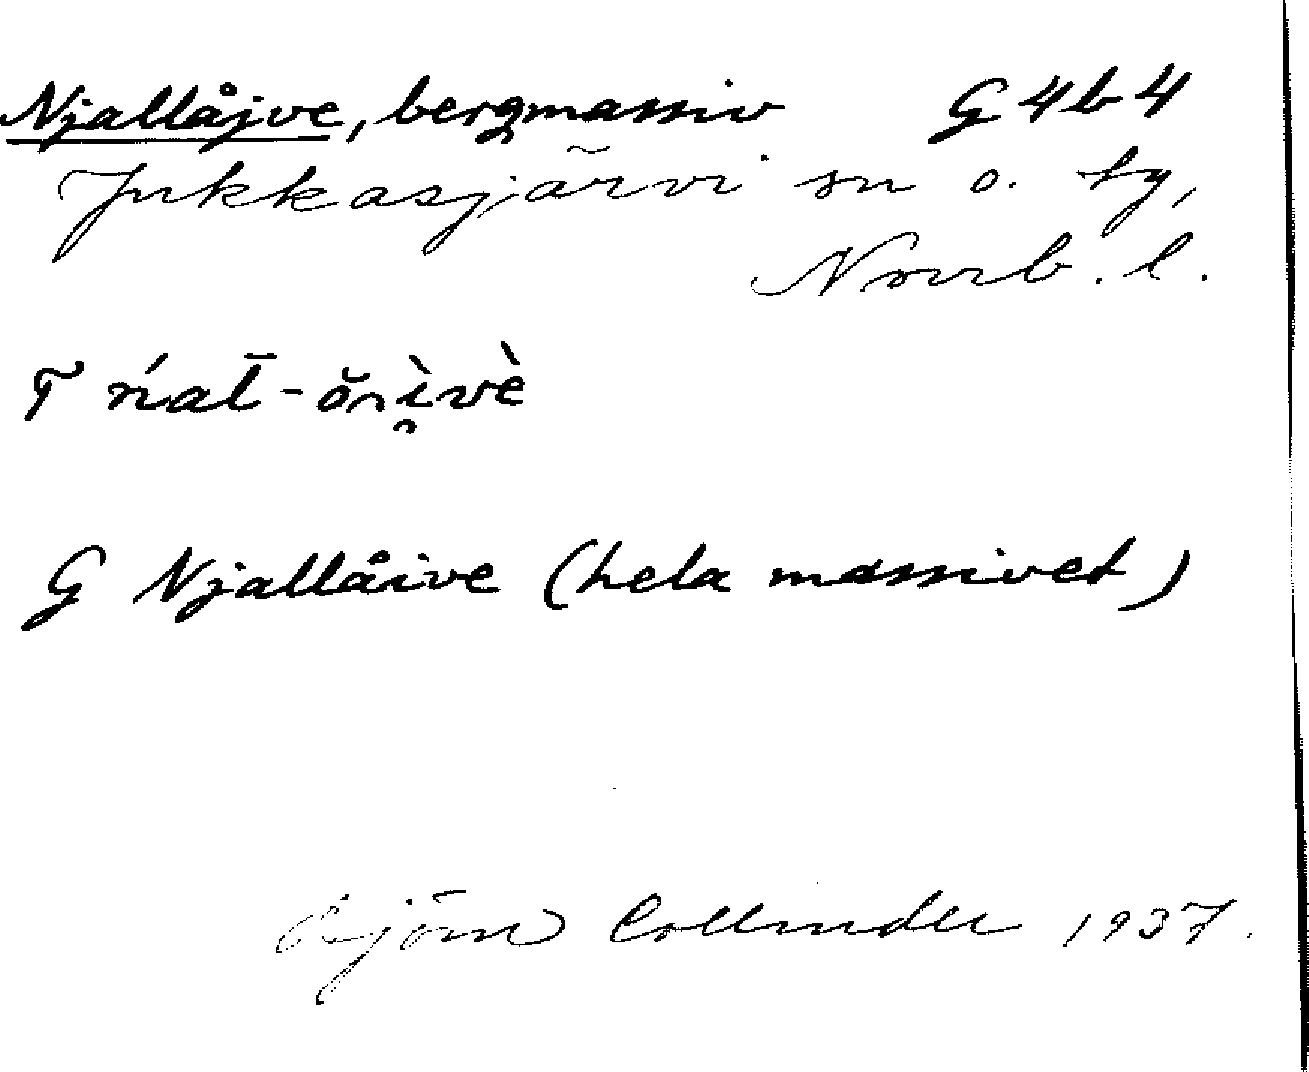 Njallåjve, bergmassiv G 4 b 4
Jukkasjärvi sn o. ty,
Norrb. l.
T ńal̄-ǒi̯vè
G Njallåive (hela massivet)
Björn Collinder 1937.